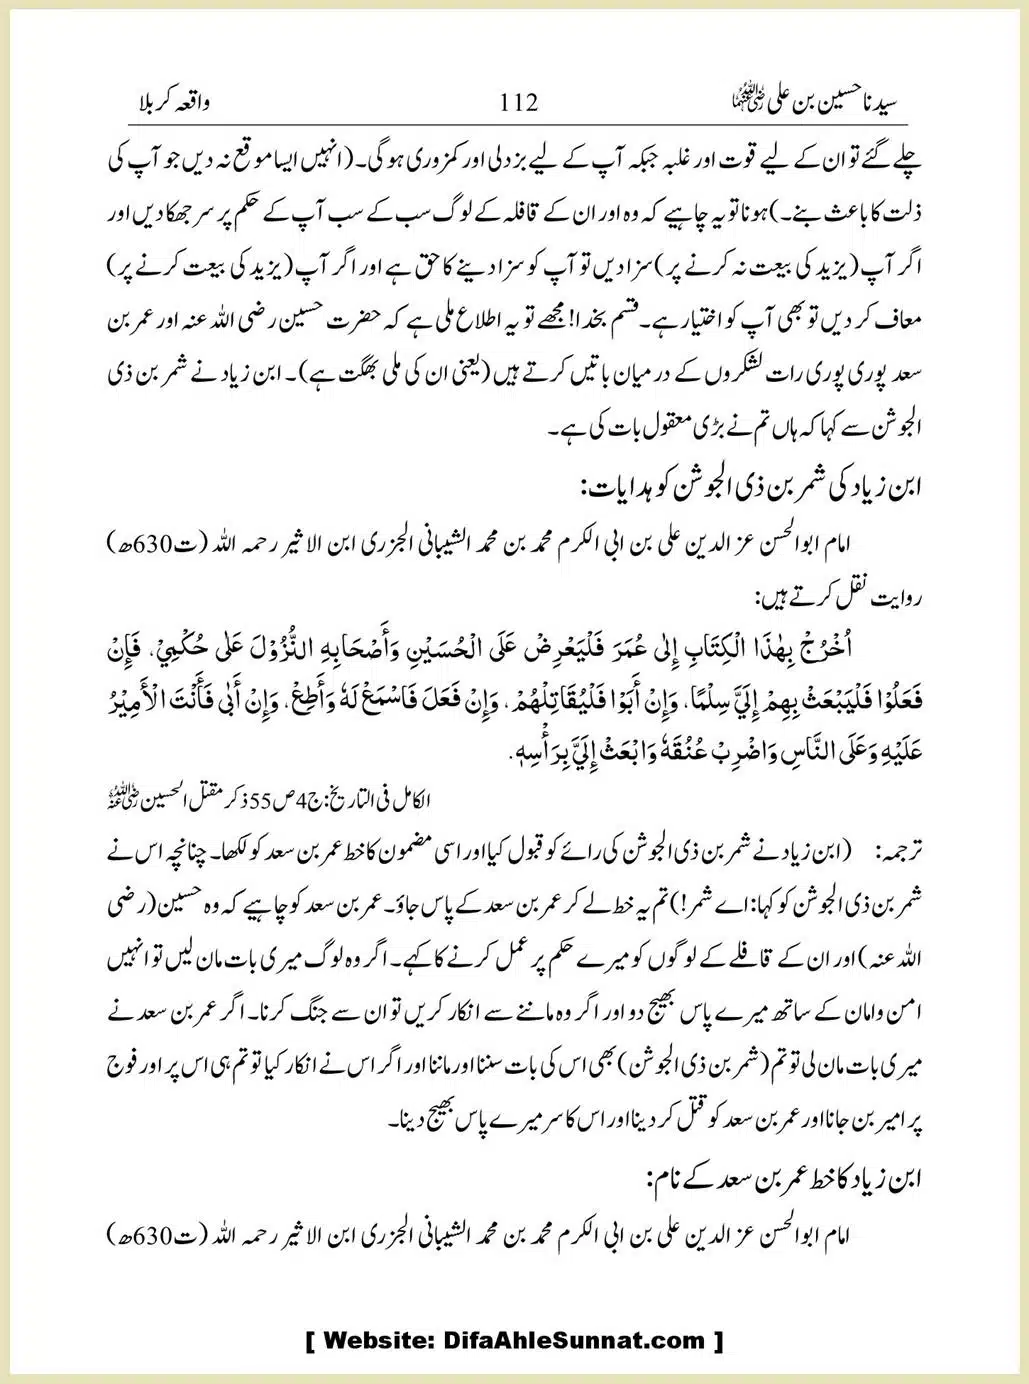 سیدنا حسین بن علی رضی اللہ عنہما 112 واقعہ کربلا
چلے گئے تو ان کے لیے قوت اور غلبہ جبکہ آپ کے لیے بزدلی اور کمزوری ہو گی۔ (انہیں ایسا موقع نہ دیں جو آپ کی
ذلت کا باعث بنے۔) ہونا تو یہ چاہیے کہ وہ اور ان کے قافلہ کے لوگ سب کے سب آپ کے حکم پر سر جھکا دیں اور
اگر آپ (یزید کی بیعت نہ کرنے پر) سزا دیں تو آپ کو سزا دینے کا حق ہے اور اگر آپ (یزید کی بیعت کرنے پر)
معاف کر دیں تو بھی آپ کو اختیار ہے۔ قسم بخدا! مجھے تو یہ اطلاع ملی ہے کہ حضرت حسین رضی اللہ عنہ اور عمر بن
سعد پوری پوری رات لشکروں کے درمیان باتیں کرتے ہیں (یعنی ان کی ملی بھگت ہے)۔ ابن زیاد نے شمر بن ذی
الجوشن سے کہا کہ ہاں تم نے بڑی معقول بات کی ہے۔
ابن زیاد کی شمر بن ذی الجوشن کو ہدایات:
امام ابوالحسن عز الدین علی بن ابی الکرم محمد بن محمد الشیبانی الجزری ابن الاثیر رحمہ اللہ (ت630ھ)
روایت نقل کرتے ہیں:
اُخْرُجْ بِهٰذَا الْكِتَابِ إِلٰى عُمَرَ فَلْيَعْرِضْ عَلَى الْحُسَيْنِ وَأَصْحَابِهِ النُّزُوْلَ عَلٰى حُكْمِيْ، فَإِنْ
فَعَلُوْا فَلْيَبْعَثْ بِهِمْ إِلَيَّ سِلْمًا، وَإِنْ أَبَوْا فَلْيُقَاتِلْهُمْ، وَإِنْ فَعَلَ فَاسْمَعْ لَهٗ وَأَطِعْ، وَإِنْ أَبٰى فَأَنْتَ الْأَمِيْرُ
عَلَيْهِ وَعَلَى النَّاسِ وَاضْرِبْ عُنُقَهٗ وَابْعَثْ إِلَيَّ بِرَأْسِهٖ.
الکامل فی التاریخ: ج4 ص55 ذکر مقتل الحسین رضی اللہ عنہ
ترجمہ: (ابن زیاد نے شمر بن ذی الجوشن کی رائے کو قبول کیا اور اسی مضمون کا خط عمر بن سعد کو لکھا۔ چنانچہ اس نے
شمر بن ذی الجوشن کو کہا: اے شمر!) تم یہ خط لے کر عمر بن سعد کے پاس جاؤ۔ عمر بن سعد کو چاہیے کہ وہ حسین (رضی
اللہ عنہ) اور ان کے قافلے کے لوگوں کو میرے حکم پر عمل کرنے کا کہے۔ اگر وہ لوگ میری بات مان لیں تو انہیں
امن و امان کے ساتھ میرے پاس بھیج دو اور اگر وہ ماننے سے انکار کریں تو ان سے جنگ کرنا۔ اگر عمر بن سعد نے
میری بات مان لی تو تم (شمر بن ذی الجوشن) بھی اس کی بات سننا اور ماننا اور اگر اس نے انکار کیا تو تم ہی اس پر اور فوج
پر امیر بن جانا اور عمر بن سعد کو قتل کر دینا اور اس کا سر میرے پاس بھیج دینا۔
ابن زیاد کا خط عمر بن سعد کے نام:
امام ابوالحسن عز الدین علی بن ابی الکرم محمد بن محمد الشیبانی الجزری ابن الاثیر رحمہ اللہ (ت630ھ)
[ Website: DifaAhleSunnat.com ]